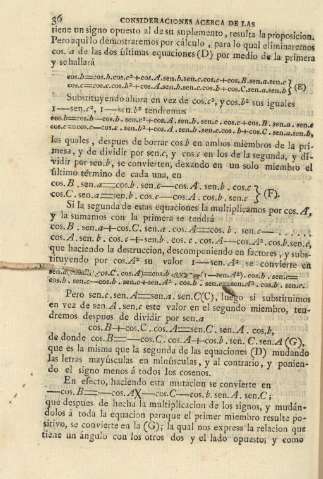 36 CONSIDERACIONES ACERCA DE LAS
tiene un signo opuesto al de su suplemento, resulta la proposicion.
Pero aquí lo demostraremos por cálculo, para lo qual eliminaremos
cos. a de las dos últimas equaciones (D) por medio de la primera
y se hallará
cos.b=cos.b.cos.c²+cos.A.sen.b.sen.c.cos.c+cos.B.sen.a.sen.c
cos.c=cos.c.cos.b²+cos.A.sen.b.sen.c.cos.b+cos.C.sen.a.sen.b, } (E)
Substituyendo ahora en vez de cos.c², y cos.b² sus iguales
1—sen.c², 1—sen.b² tendremos
las quales, despues de borrar cos.b en ambos miembros de la primera,
y de dividir por sen.c, y cos.c en los de la segunda, y dividir
por sen.b, se convierten, dexando en un solo miembro el
último término de cada una, en
cos.B.sen.a=cos.b.sen.c—cos.A.sen.b.cos.c
cos.C.sen.a=sen.b.cos.c—cos.A.cos.b.sen.c } (F).
Si la segunda de estas equaciones la multiplicamos por cos.A,
y la sumamos con la primera se tendrá
que haciendo la destruccion, descomponiendo en factores, y substituyendo
por cos.A² su valor 1—sen.A², se convierte en
Pero sen.c.sen.A=sen.a.sen.C(C), luego si substituimos
en vez de sen.A.sen.c este valor en el segundo miembro, tendremos
despues de dividir por sen.a
cos.B+cos.C.cos.A=sen.C.sen.A.cos.b,
de donde cos.B=—cos.C.cos.A+cos.b.sen.C.sen.A (G),
que es la misma que la segunda de las equaciones (D) mudando
las letras mayúsculas en minúsculas, y al contrario, y poniendo
el signo menos á todos los cosenos.
En efecto, haciendo esta mutacion se convierte en
—cos.B=—cos.A×—cos.C—cos.b.sen.A.sen.C;
que despues de hecha la multiplicacion de los signos, y mudándolos
á toda la equacion para que el primer miembro resulte positivo,
se convierte en la (G); la qual nos expresa la relacion que
tiene un ángulo con los otros dos y el lado opuesto; y como